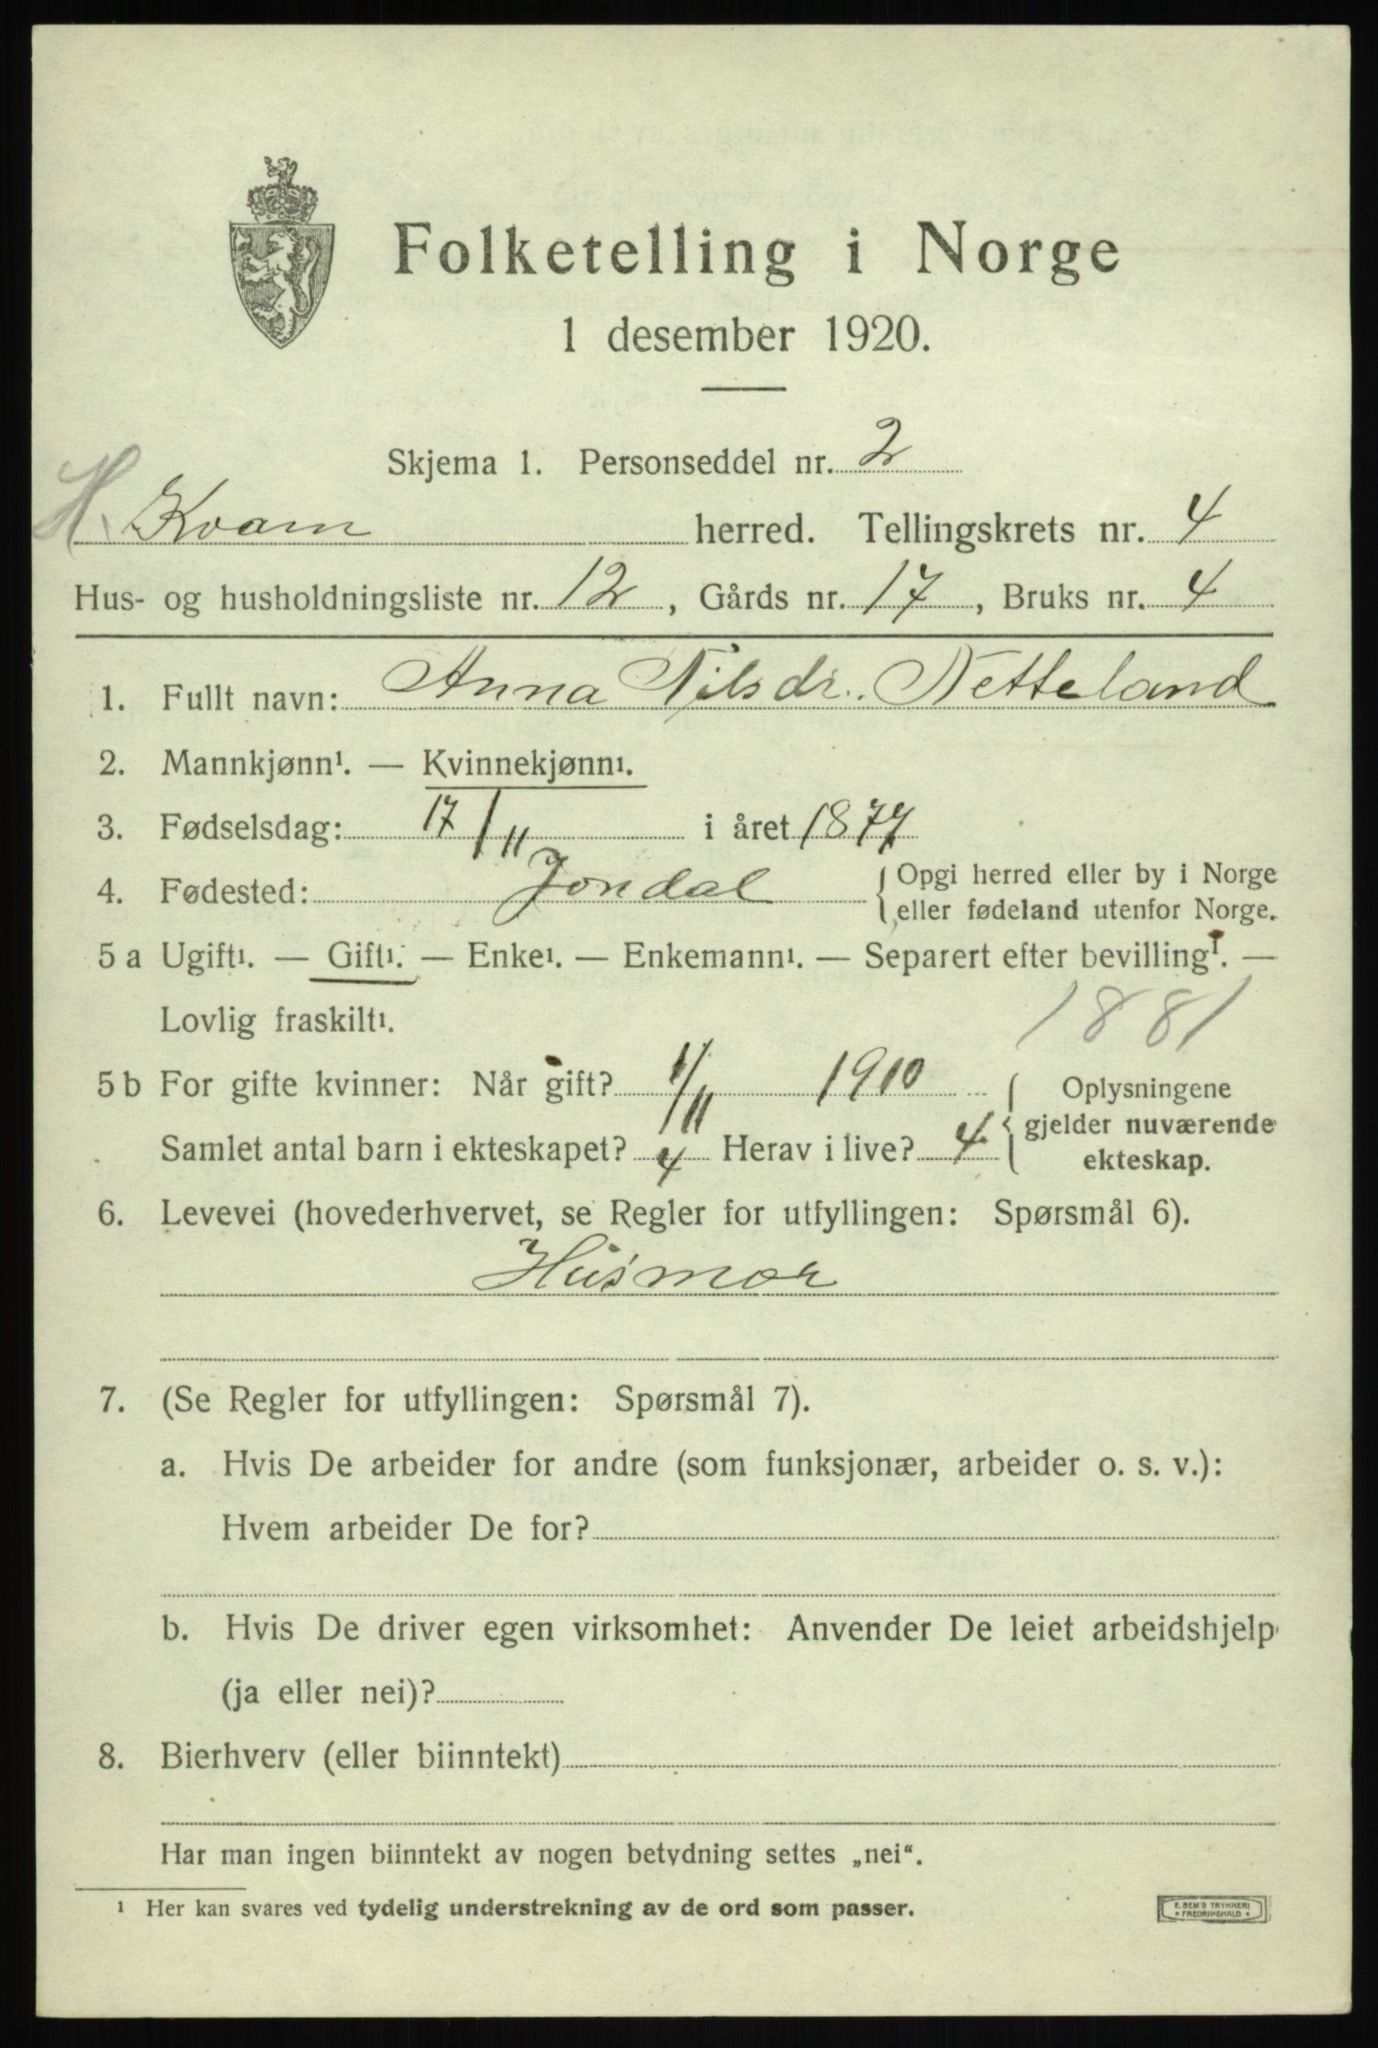 Folketelling i Norge
1 desember 1920.
Skjema 1. Personseddel nr. 2
H. Kvam herred. Tellingskrets nr. 4
Hus- og husholdningsliste nr. 12, Gårds nr. 17, Bruks nr. 4
1. Fullt navn: Anna Nilsdr. Netteland
2. Mannkjønn¹. — Kvinnekjønn¹.
3. Fødselsdag: 17/11 i året 1877
4. Fødested: Jondal {Opgi herred eller by i Norge
eller fødeland utenfor Norge.
5 a Ugift¹. — Gift¹. — Enke¹. — Enkemann¹. — Separert efter bevilling¹. —
Lovlig fraskilt¹.
1881
5 b For gifte kvinner: Når gift? 1/11 1910 { Oplysningene
Samlet antal barn i ekteskapet? 4 Herav i live? 4 gjelder nuværende
ekteskap.
6. Levevei (hovederhvervet, se Regler for utfyllingen: Spørsmål 6).
Husmor
7. (Se Regler for utfyllingen: Spørsmål 7).
a. Hvis De arbeider for andre (som funksjonær, arbeider o. s. v.):
Hvem arbeider De for?
b. Hvis De driver egen virksomhet: Anvender De leiet arbeidshjelp
(ja eller nei)?
8. Bierhverv (eller biinntekt)
Har man ingen biinntekt av nogen betydning settes „nei“.
¹ Her kan svares ved tydelig understrekning av de ord som passer.
E. SEM'S TRYKKERI
• FREDRIKSHALD •